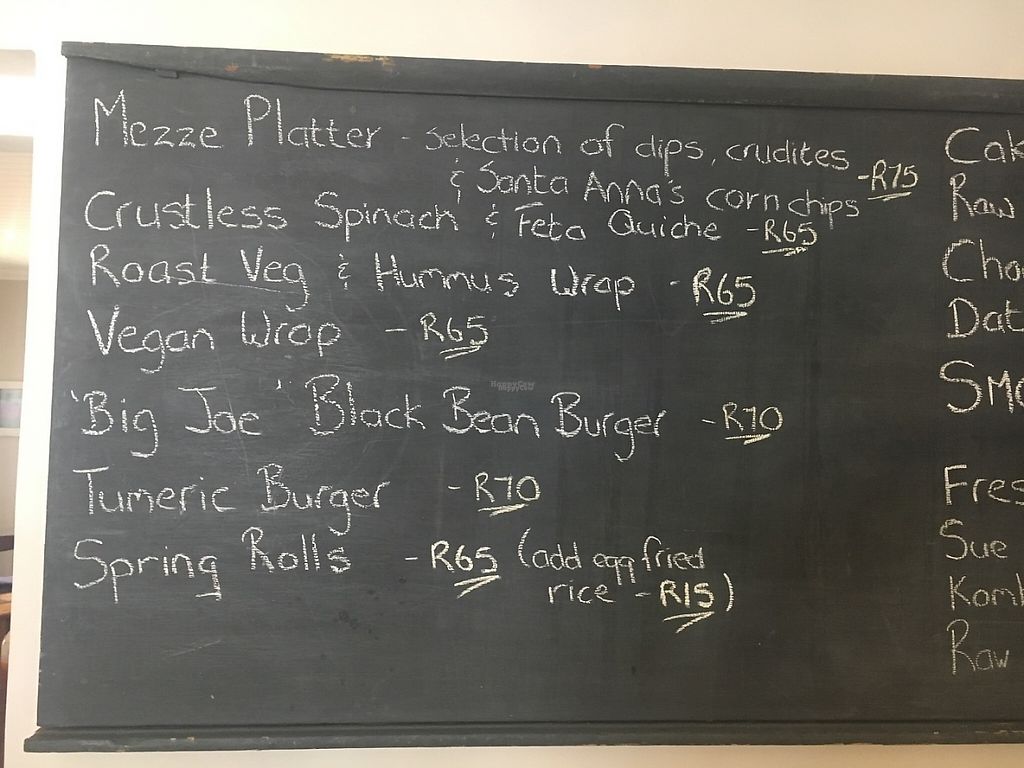 Mezze Platter - selection of dips, crudites
& Santa Anna's corn chips -R75
Crustless Spinach & Feta Quiche -R65
Roast Veg & Hummus Wrap - R65
Vegan Wrap - R65
'Big Joe' Black Bean Burger -R70
Tumeric Burger - R70
Spring Rolls - R65 (add egg fried
rice - R15)
Cak
Raw
Cho
Dat
Smo
Fres
Sue
Kom
Raw
HappyCow